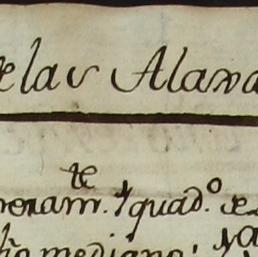 elas Alava
te
noram. y quad.º de
ño mediano, ya